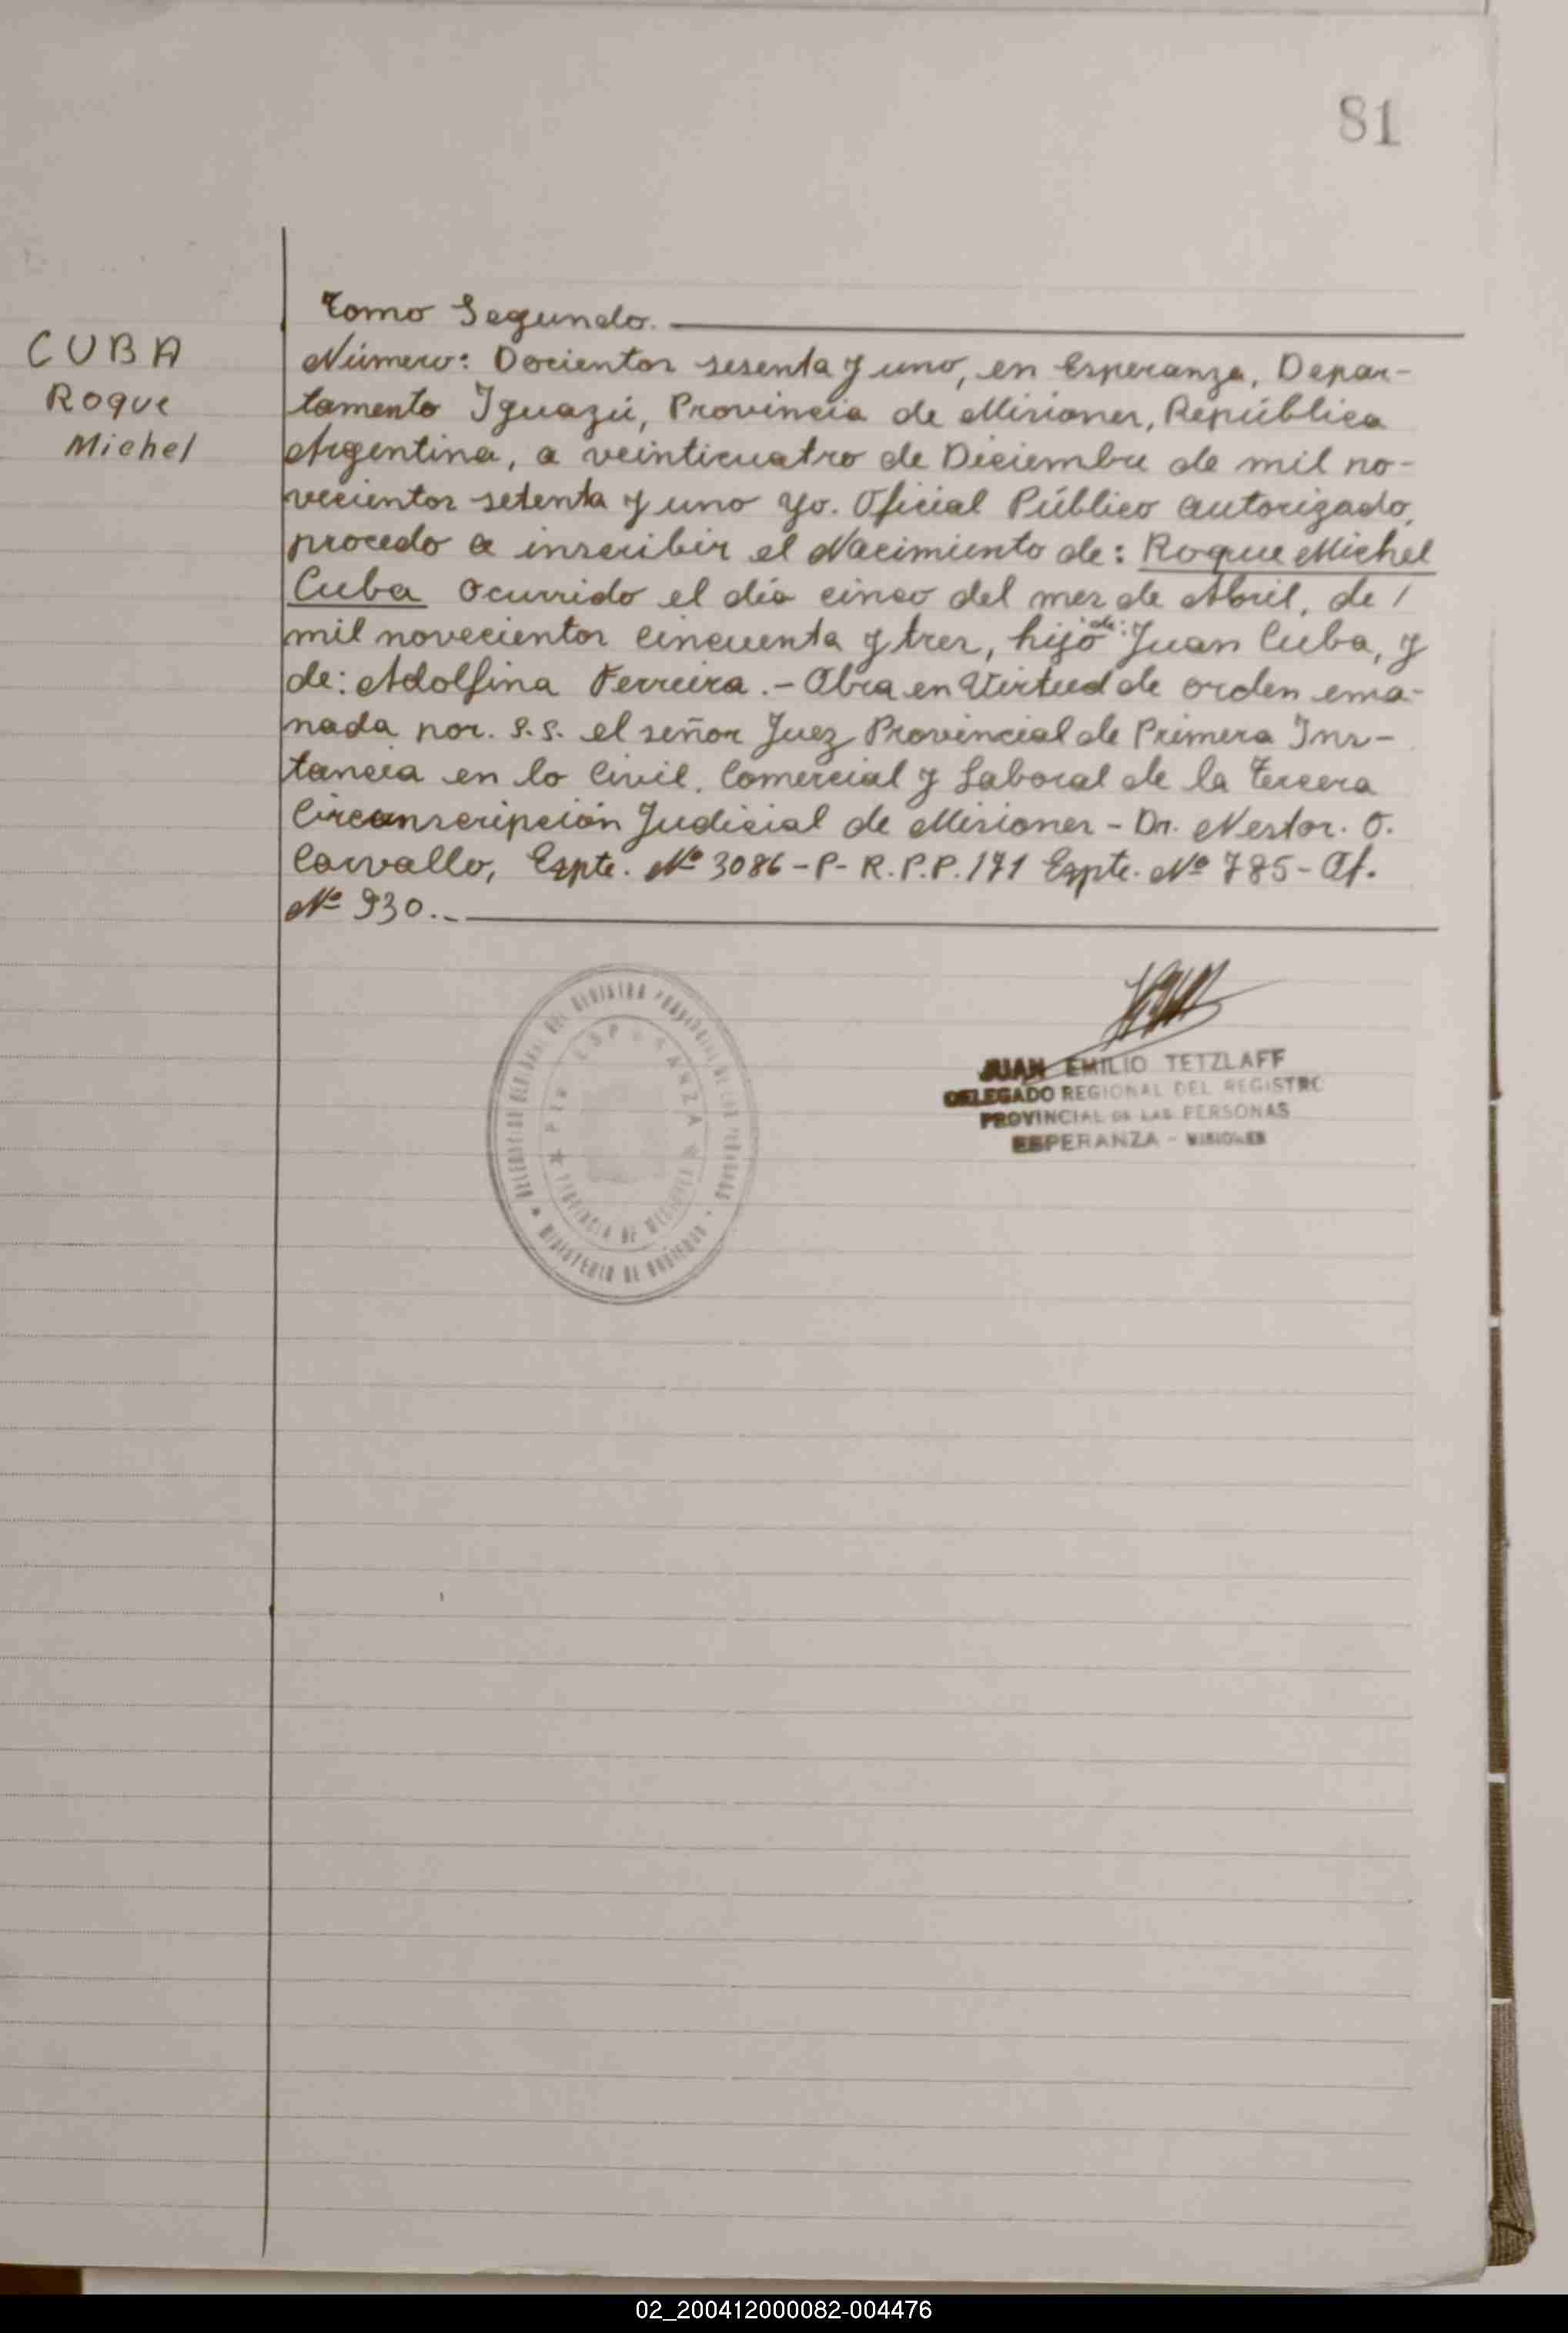 81
Tomo Segundo.
CUBA
Roque
Michel
Número: Docientos sesenta y uno, en Esperanza, Depar-
tamento Iguazú, Provincia de Misiones, República
Argentina, a veinticuatro de Diciembre de mil no-
vecientos setenta y uno yo. Oficial Público autorizado,
procedo a inscribir el Nacimiento de: Roque Michel
Cuba Ocurrido el día cinco del mes de Abril, de /
mil novecientos cincuenta y tres, hijo de: Juan Cuba, y
de: Adolfina Ferreira.- Obra en Virtud de orden ema-
nada por. S.S. el señor Juez Provincial de Primera Ins-
tancia en lo Civil. Comercial y Laboral de la Tercera
Circunscripción Judicial de Misiones - Dr. Nestor. O.
Carvallo, Expte. Nº 3086-P- R.P.P. 171 Expte. Nº 785- Af.
Nº 930.-
REGISTRO PROVINCIAL DE LAS PERSONAS
ESPERANZA
PROVINCIA DE MISIONES
MINISTERIO DE GOBIERNO
JUAN EMILIO TETZLAFF
DELEGADO REGIONAL DEL REGISTRO
PROVINCIAL DE LAS PERSONAS
ESPERANZA - MISIONES
02_200412000082-004476